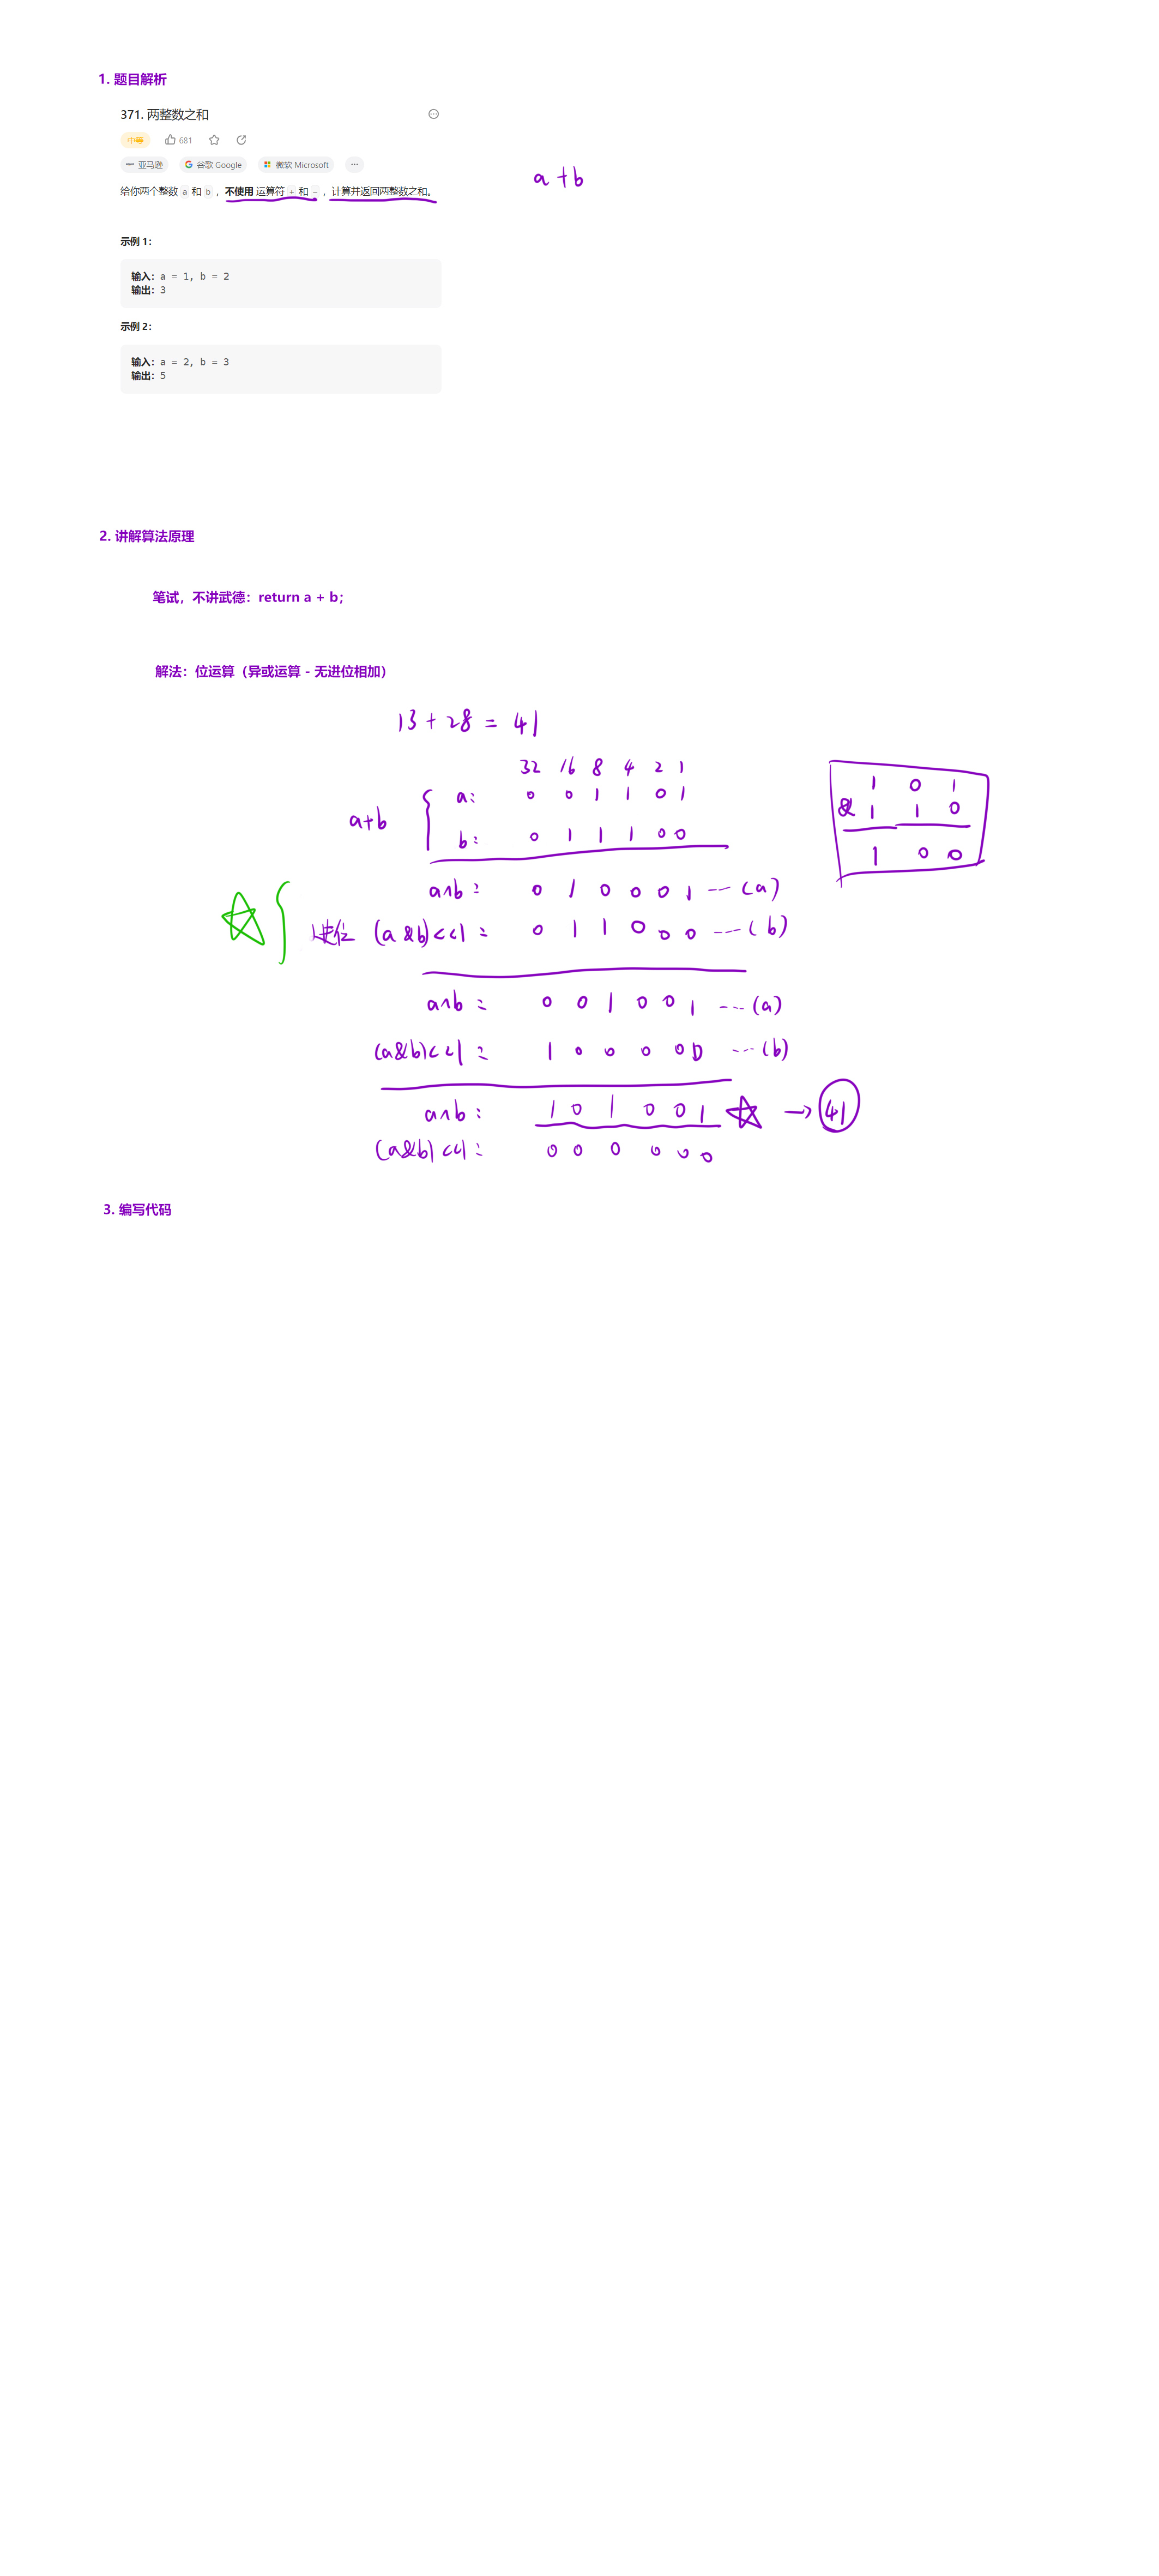 1. 题目解析
371. 两整数之和
中等 681
亚马逊 谷歌 Google 微软 Microsoft
给你两个整数 a 和 b ，不使用 运算符 + 和 - ，计算并返回两整数之和。
a + b
示例 1：
输入：a = 1, b = 2
输出：3
示例 2：
输入：a = 2, b = 3
输出：5
2. 讲解算法原理
笔试，不讲武德：return a + b；
解法：位运算（异或运算 - 无进位相加）
13 + 28 = 41
32 16 8 4 2 1
a+b
a: 0 0 1 1 0 1
b: 0 1 1 1 0 0
1 0 1
& 1 1 0
1 0 0
a^b = 0 1 0 0 0 1 --- (a)
进位 (a&b)<<1 = 0 1 1 0 0 0 --- (b)
a^b = 0 0 1 0 0 1 --- (a)
(a&b)<<1 = 1 0 0 0 0 0 --- (b)
a^b : 1 0 1 0 0 1 → 41
(a&b)<<1 : 0 0 0 0 0 0
3. 编写代码